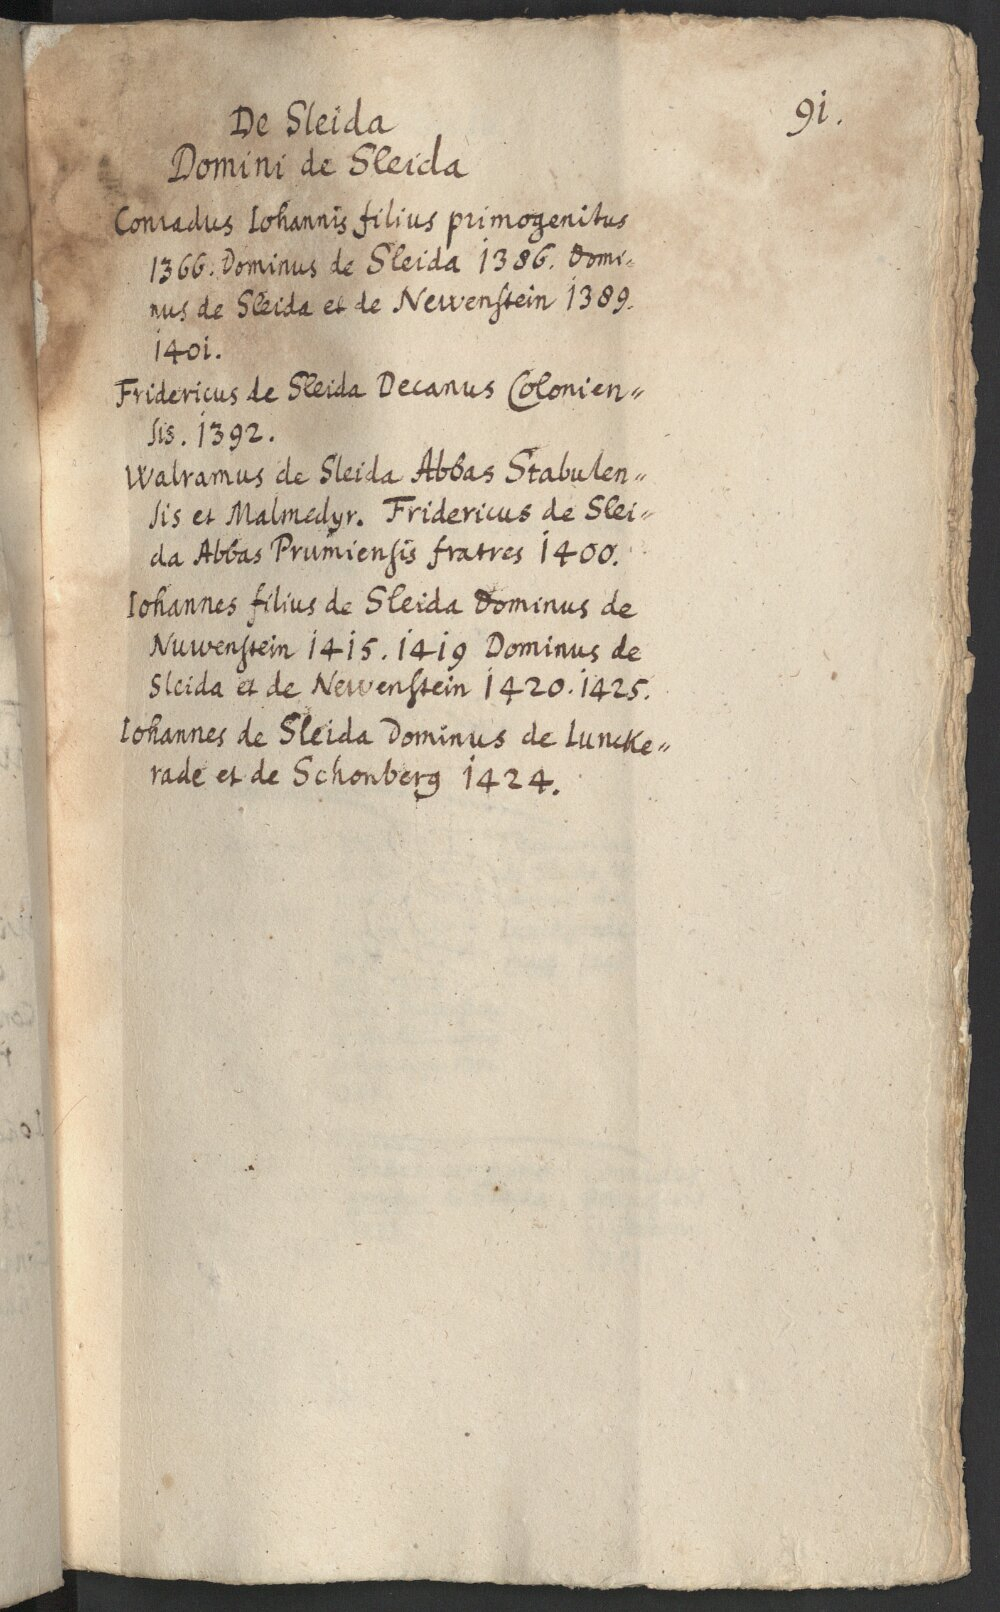 91.
De Sleida
Domini de Sleida
Conradus Iohannis filius primogenitus
1366. Dominus de Sleida 1386. Domi-
nus de Sleida et de Newenstein 1389.
1401.
Fridericus de Sleida Decanus Colonien=
sis. 1392.
Walramus de Sleida Abbas Stabulen=
sis et Malmedyr. Fridericus de Slei=
da Abbas Prumiensis fratres 1400.
Iohannes filius de Sleida Dominus de
Nuwenstein 1415. 1419 Dominus de
Sleida et de Newenstein 1420. 1425.
Iohannes de Sleida Dominus de Luncke=
rade et de Schonberg 1424.